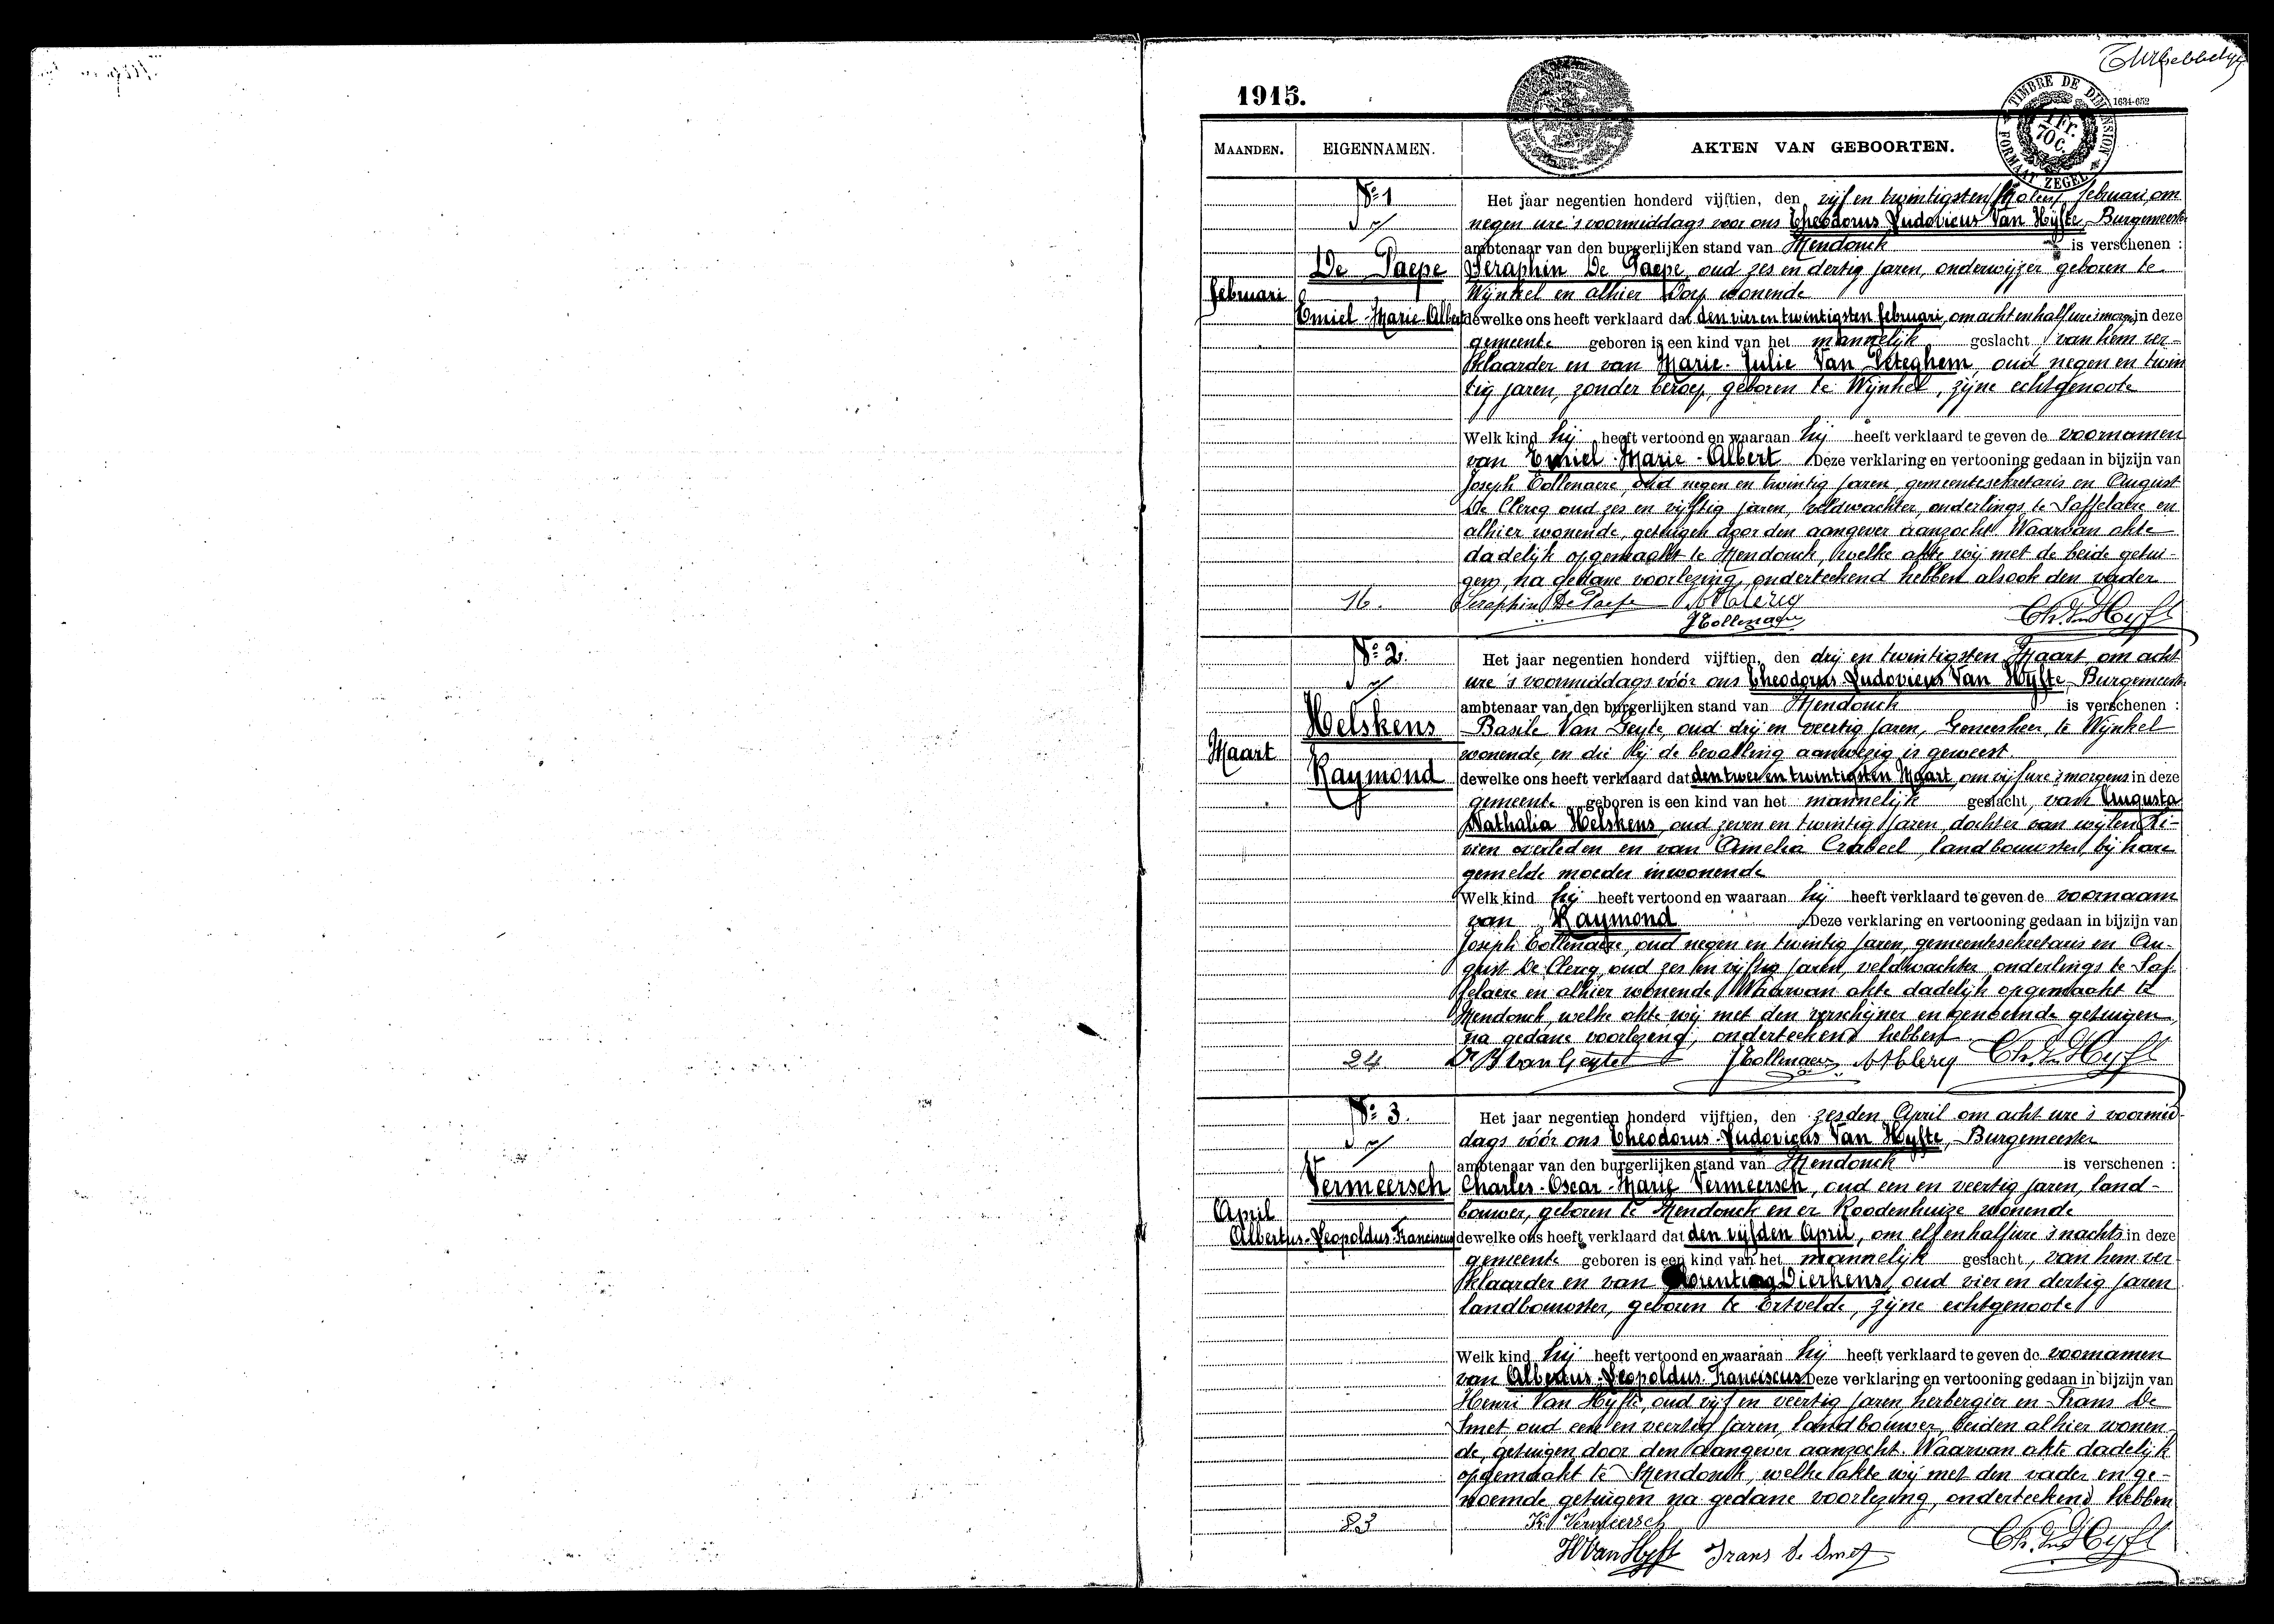 1915.
1634-652
TIMBRE DE DIMENSION
1 Fr. 70 C.
FORMAAT ZEGEL
MAANDEN. EIGENNAMEN. AKTEN VAN GEBOORTEN.
No 1
Het jaar negentien honderd vijftien, den vijf en twintigsten februari, om
negen ure 's voormiddags voor ons Theodorus Ludovicus Van Hyfte, Burgemeester
ambtenaar van den burgerlijken stand van Mendonck is verschenen :
De Paepe
Seraphin De Paepe, oud zes en dertig jaren, onderwijzer geboren te
februari
Wijnkel en alhier Dorp wonende
Emiel-Marie-Albert
dewelke ons heeft verklaard dat den vier en twintigsten februari, om acht en half ure 's morgens in deze
gemeente geboren is een kind van het mannelijk geslacht, van hem ver-
klaarder en van Marie-Julie Van Peteghem, oud negen en twin
tig jaren, zonder beroep, geboren te Wijnkel, zijne echtgenoote
Welk kind hij heeft vertoond en waaraan hij heeft verklaard te geven de voornamen
van Emiel-Marie-Albert Deze verklaring en vertooning gedaan in bijzijn van
Joseph Tollenaere, oud negen en twintig jaren, gemeentesekretaris en August
De Clercq oud zes en vijftig jaren, veldwachter, onderlings te Saffelaere en
alhier wonende, getuigen door den aangever aanzocht. Waarvan akte
dadelijk opgemaakt te Mendonck, welke akte wij met de beide getui-
gen, na gedane voorlezing, onderteekend hebben alsook den vader
16.
Seraphin De Paepe A De Clercq
J Tollenaere Th. Van Hyfte
No 2.
Het jaar negentien honderd vijftien, den drij en twintigsten Maart om acht
ure 's voormiddags vóór ons Theodorus-Ludovicus Van Hyfte, Burgemeester
ambtenaar van den burgerlijken stand van Mendonck is verschenen :
Helskens
Basile Van Geyte, oud drij en veertig jaren, Geneesheer, te Wijnkel
Maart
wonende, en die bij de bevalling aanwezig is geweest.
Raymond
dewelke ons heeft verklaard dat den twee en twintigsten Maart, om vijf ure 's morgens in deze
gemeente geboren is een kind van het mannelijk geslacht, van Augusta
Nathalia Helskens, oud zeven en twintig jaren, dochter van wijlen Li-
vien overleden en van Amelia Crabeel, landbouwster, bij hare
gemelde moeder inwonende
Welk kind hij heeft vertoond en waaraan hij heeft verklaard te geven de voornaam
van Raymond Deze verklaring en vertooning gedaan in bijzijn van
Joseph Tollenaere, oud negen en twintig jaren, gemeentesekretaris en Au-
gust De Clercq, oud zes en vijftig jaren, veldwachter, onderlings te Saf-
felaere en alhier wonende. Waarvan akte dadelijk opgemaakt te
Mendonck, welke akte wij met den verschijner en genoemde getuigen,
na gedane voorlezing, onderteekend hebben
24.
Dr B Van Geyte J Tollenaere A De Clercq Th. Van Hyfte
No 3.
Het jaar negentien honderd vijftien, den zesden April om acht ure 's voormid-
dags vóór ons Theodorus-Ludovicus Van Hyfte, Burgemeester
ambtenaar van den burgerlijken stand van Mendonck is verschenen :
Vermeersch
Charles-Oscar-Marie Vermeersch, oud een en veertig jaren, land-
April
bouwer, geboren te Mendonck en er Roodenhuize wonende
Albertus-Leopoldus-Franciscus
dewelke ons heeft verklaard dat den vijfden April, om elf en half ure 's nachts in deze
gemeente geboren is een kind van het mannelijk geslacht, van hem ver-
klaarder en van Dierkens, oud vier en dertig jaren
landbouwster, geboren te Ertvelde, zijne echtgenoote
Welk kind hij heeft vertoond en waaraan hij heeft verklaard te geven de voornamen
van Albertus-Leopoldus-Franciscus Deze verklaring en vertooning gedaan in bijzijn van
Henri Van Hyfte, oud vijf en veertig jaren, herbergier en Frans De
Smet, oud een en veertig jaren, landbouwer, beiden alhier wonen-
de, getuigen door den aangever aanzocht. Waarvan akte dadelijk
opgemaakt te Mendonck, welke akte wij met den vader en ge-
noemde getuigen na gedane voorlezing, onderteekend hebben
83
K. Vermeersch
H Van Hyfte Frans De Smet Th. Van Hyfte